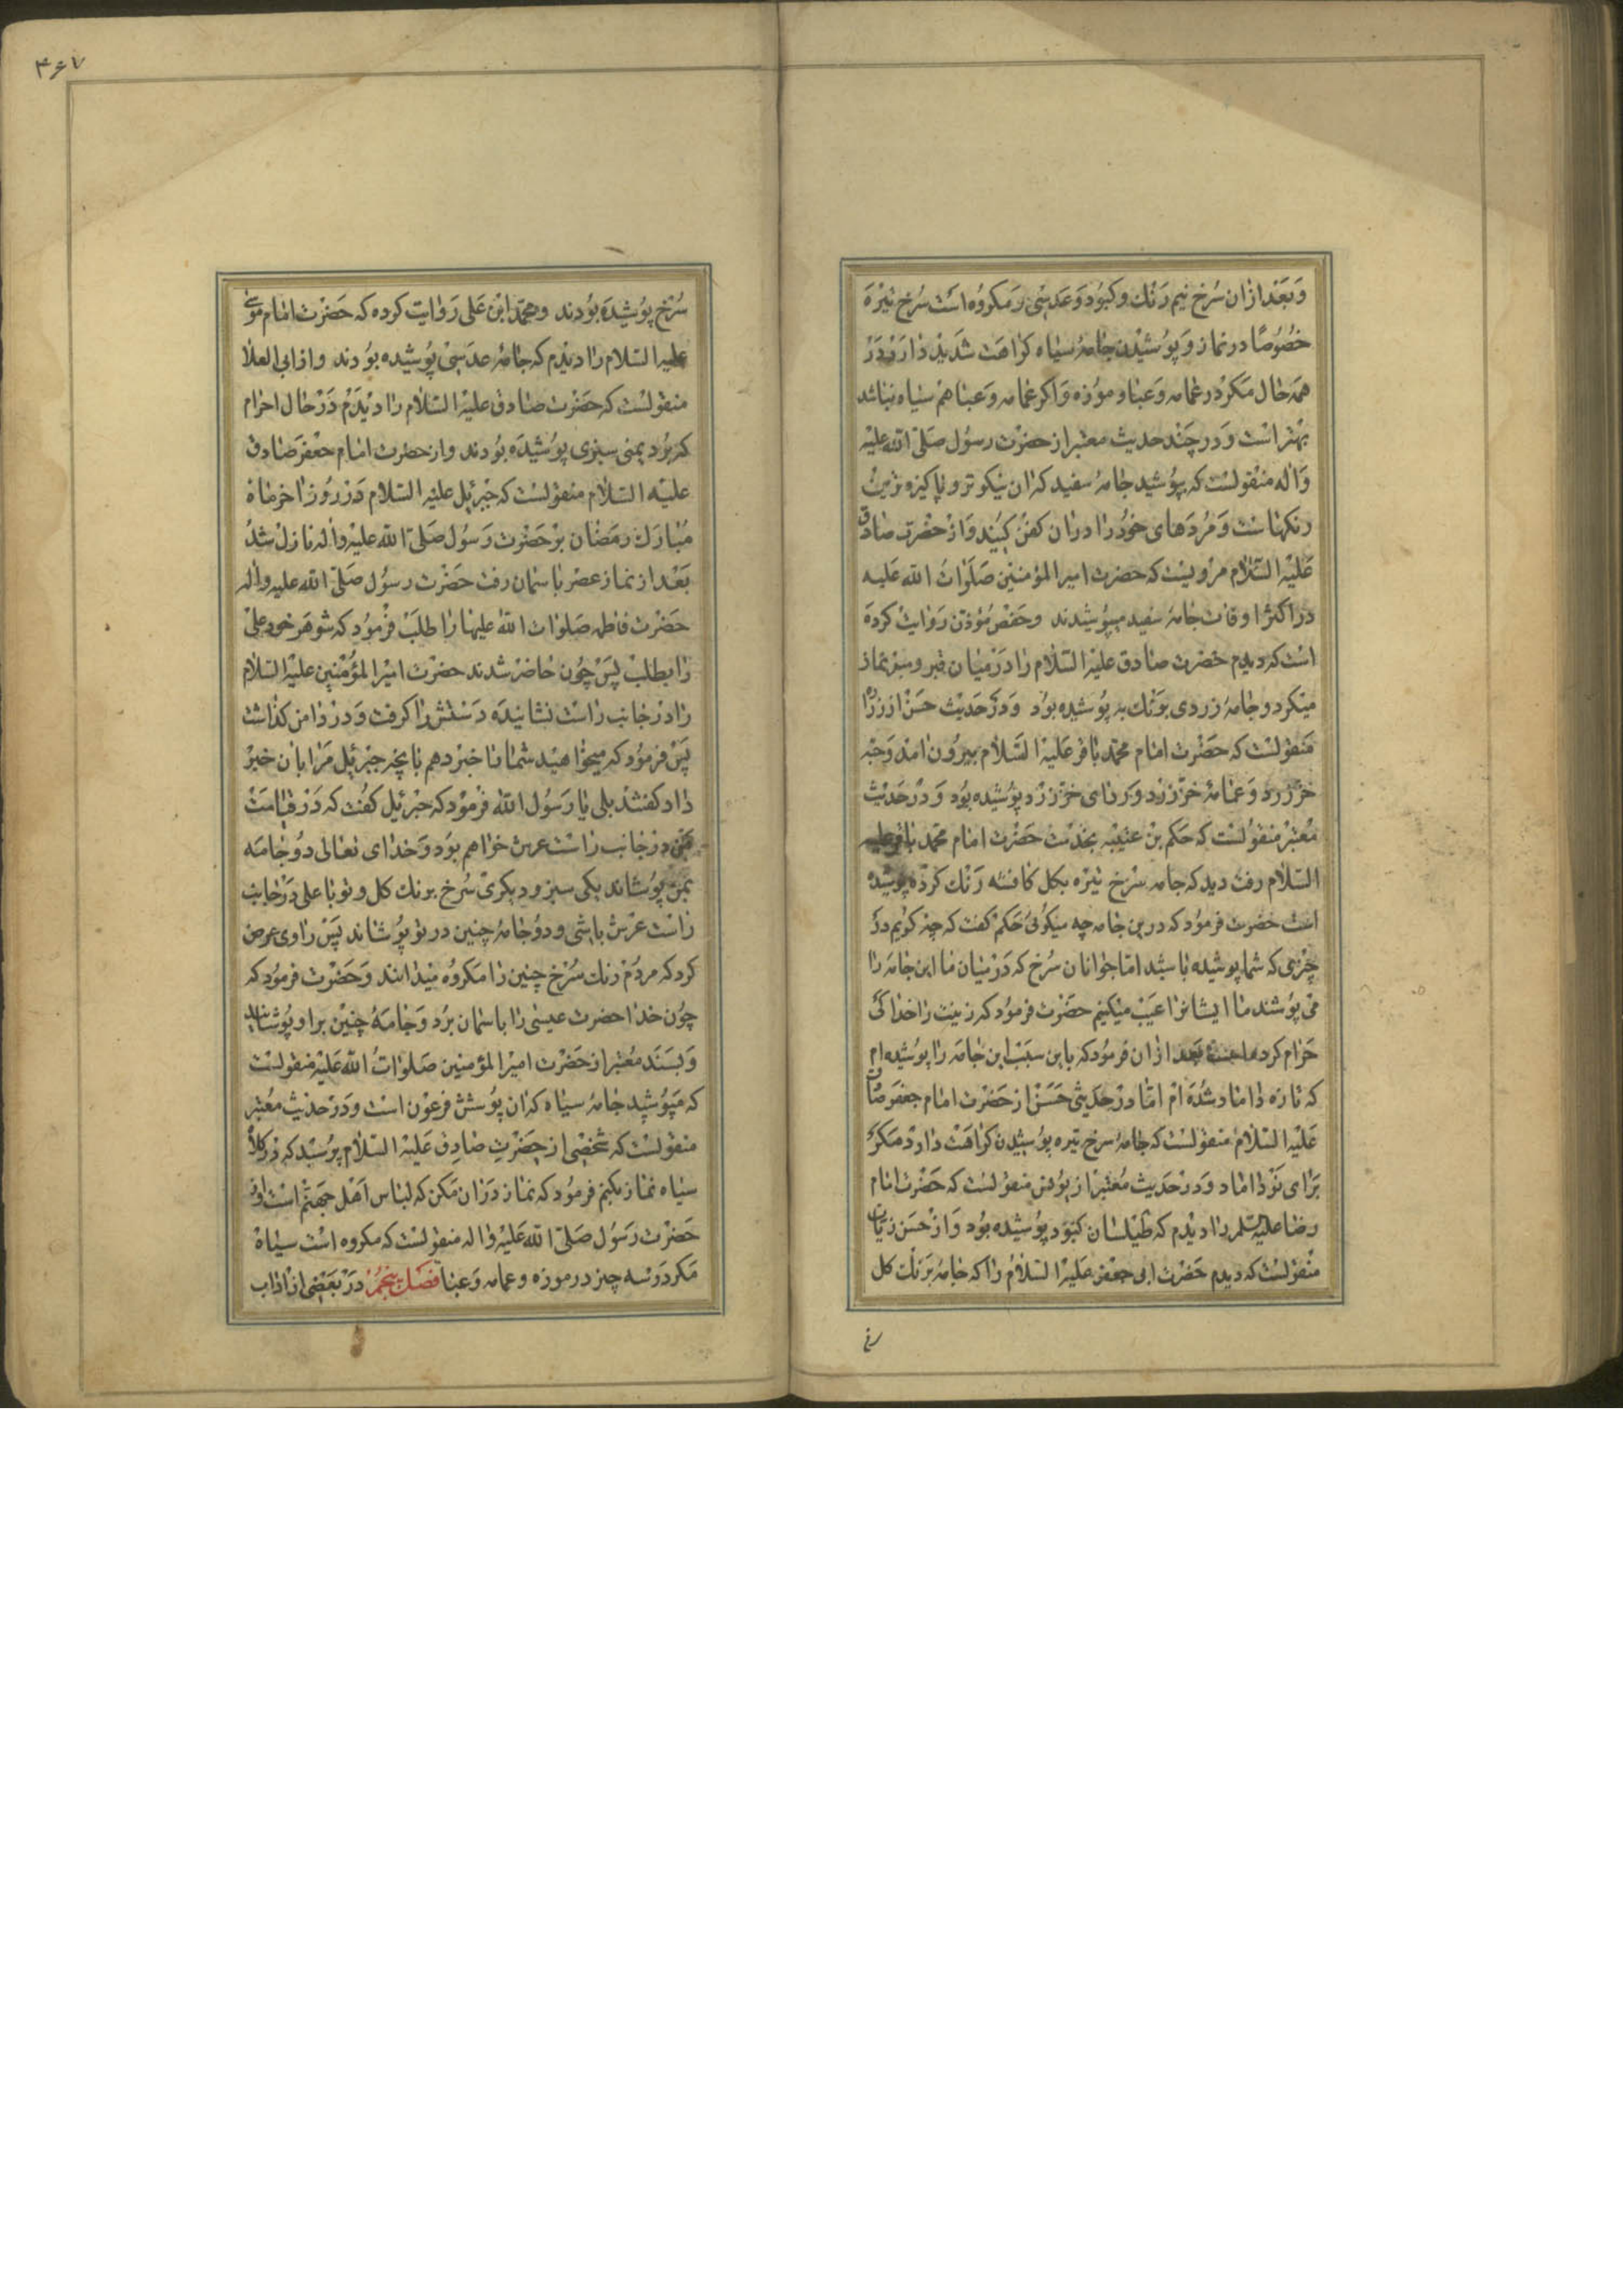 وبعد ازان سرخ نیم رنك و كبود و عدسی و مكروه است سرخ تیره
خصوصا در نماز و پوشیدن جامهٔ سیاه كراهت شدید دارد در
همه حال مكر در عمامه و عبا و موزه و اكر عمامه و عبا هم سیاه نباشد
بهتر است و در چند حدیث معتبر از حضرت رسول صلی الله علیه
و اله منقولست كه بپوشید جامهٔ سفید كه ان نیكوتر و پاكیزه ترین
رنكهاست و مردهای خود را دران كفن كنید و از حضرت صادق
علیه السلام مرویست كه حضرت امیر المؤمنین صلوات الله علیه
در اكثر اوقات جامهٔ سفید میپوشیدند و حفص مؤذن روایت كرده
است كه دیدم حضرت صادق علیه السلام را در میان قبر و منبر نماز
میكرد و جامهٔ زردی برنك به پوشیده بود و در حدیث حسن از زراره
منقولست كه حضرت امام محمد باقر علیه السلام بیرون امد و جبه
خز زرد و عمامهٔ خز زرد و ردای خز زرد پوشیده بود و در حدیث
معتبر منقولست كه حكم بن عتیبه بخدمت حضرت امام محمد باقر علیه
السلام رفت دید كه جامه سرخ تیره بكل كافشه رنك كرده پوشیده
است حضرت فرمود كه درین جامه چه میكوئی حكم كفت كه چه كویم در
چیزی كه شما پوشیده باشید اما جوانان سرخ كه در میان ما این جامه را
می پوشند ما ایشانرا عیب میكنیم حضرت فرمود كه زینت را خدا كی
حرام كرده است بعد ازان فرمود كه باین سبب این جامه را پوشیده ام
كه تازه داماد شده ام اما در حدیثی حسن از حضرت امام جعفر صادق
علیه السلام منقولست كه جامهٔ سرخ تیره پوشیدن كراهت دارد مكر
برای نو داماد و در حدیث معتبر از یونس منقولست كه حضرت امام
رضا علیه السلم را دیدم كه طیلسان كبود پوشیده بود و از حسن زیات
منقولست كه دیدم حضرت ابی جعفر علیه السلام را كه جامهٔ برنك كل
۴۶۷
سرخ پوشیده بودند و محمد ابن علی روایت كرده كه حضرت امام موسی
علیه السلام را دیدم كه جامهٔ عدسی پوشیده بودند و از ابی العلا
منقولست كه حضرت صادق علیه السلام را دیدم در حال احرام
كه برد یمنی سبزی پوشیده بودند و از حضرت امام جعفر صادق
علیه السلام منقولست كه جبرئیل علیه السلام در روز اخر ماه
مبارك رمضان بر حضرت رسول صلی الله علیه و اله نازل شد
بعد از نماز عصر باسمان رفت حضرت رسول صلی الله علیه و اله
حضرت فاطمه صلوات الله علیها را طلب فرمود كه شوهر خود علی
را بطلب پس چون حاضر شدند حضرت امیر المؤمنین علیه السلام
را در جانب راست نشانیده دستش را كرفت و در دامن كذاشت
پس فرمود كه میخواهید شما را خبر دهم بانچه جبرئیل مرا بان خبر
داد كفتند بلی یا رسول الله فرمود كه جبرئیل كفت كه در قیامت
من در جانب راست عرش خواهم بود و خدای تعالی دو جامه
بمن پوشاند یكی سبز و دیكری سرخ برنك كل و تو یا علی در جانب
راست عرش باشی و دو جامهٔ چنین در تو پوشاند پس راوی عرض
كرد كه مردم رنك سرخ چنین را مكروه میدانند و حضرت فرمود كه
چون خدا حضرت عیسی را باسمان برد و جامهٔ چنین براو پوشانید
و بسند معتبر از حضرت امیر المؤمنین صلوات الله علیه منقولست
كه مپوشید جامهٔ سیاه كه ان پوشش فرعون است و در حدیث معتبر
منقولست كه شخصی از حضرت صادق علیه السلام پرسید كه در كلاه
سیاه نماز بكنم فرمود كه نماز دران مكن كه لباس اهل جهنم است و از
حضرت رسول صلی الله علیه و اله منقولست كه مكروه است سیاه
مكر در سه چیز در موزه و عمامه و عبا فصل پنجم در بعضی از اداب